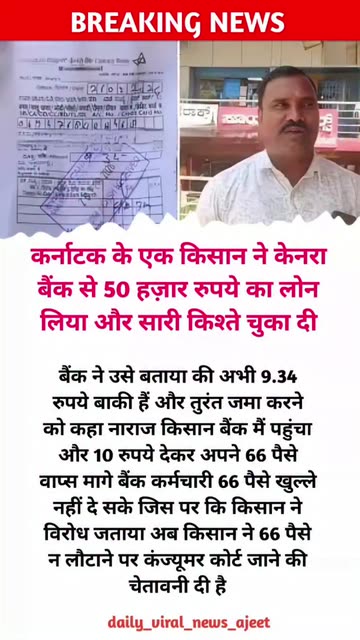 BREAKING NEWS
कर्नाटक के एक किसान ने केनरा
बैंक से 50 हज़ार रुपये का लोन
लिया और सारी किश्ते चुका दी
बैंक ने उसे बताया की अभी 9.34
रुपये बाकी हैं और तुरंत जमा करने
को कहा नाराज किसान बैंक मैं पहुंचा
और 10 रुपये देकर अपने 66 पैसे
वाप्स मागे बैंक कर्मचारी 66 पैसे खुल्ले
नहीं दे सके जिस पर कि किसान ने
विरोध जताया अब किसान ने 66 पैसे
न लौटाने पर कंज्यूमर कोर्ट जाने की
चेतावनी दी है
daily_viral_news_ajeet